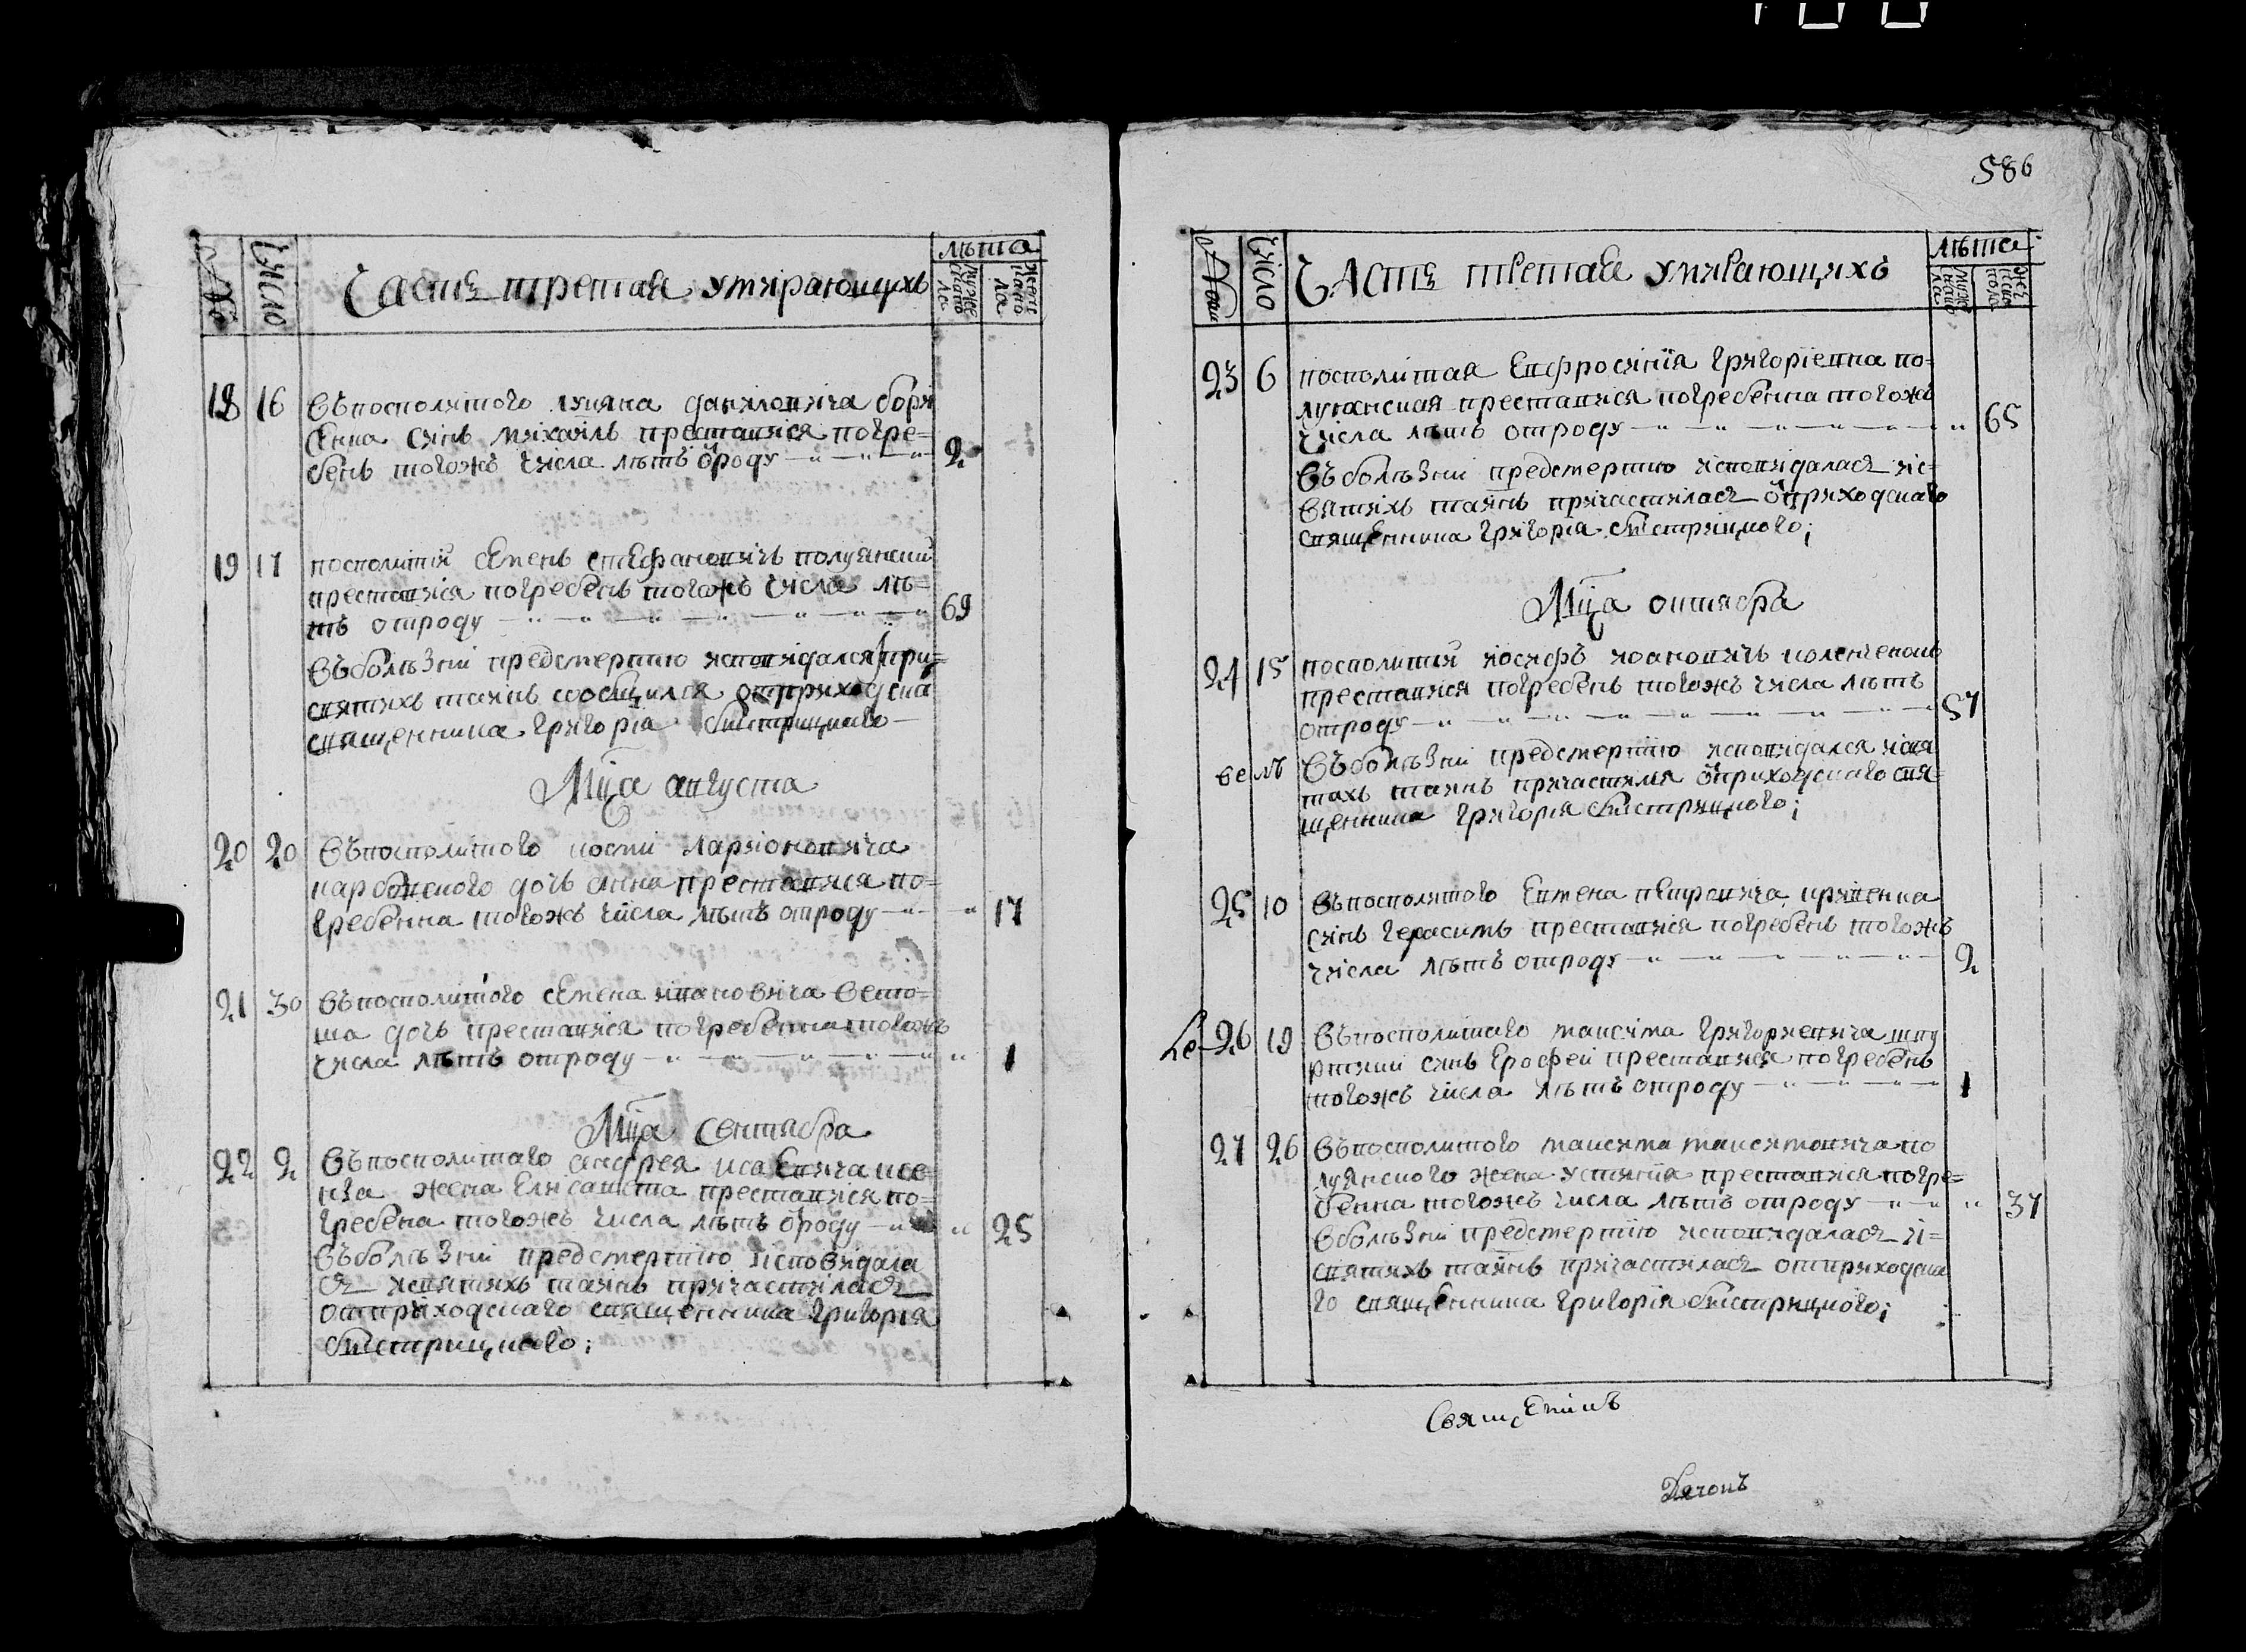 Часть третая умирающихъ
лѣта
Число
18 16 Въ посполитого лукяна даниловича бори
сенка синъ михаилъ преставися погре=
бенъ тогожъ числа лѣтъ ѿроду 2
19 17 посполитій семенъ стефановичъ полуянскій
преставися погребенъ тогожъ числа лѣ=
тъ отроду 69
Въ болѣзни предсмертию исповидался и при
святихъ таинъ сообщился отприходска
священника григорія бистрицкаго
Мца августа
20 20 Въ посполитого кости ларионовича
дочь анна преставися по=
гребенна тогожъ числа лѣтъ отроду 17
21 30 Въ посполитого семена ивановича вето=
ша дочь преставися погребенна тогожъ
числа лѣтъ отроду 1
Мца сентября
22 2 Въ посполитаго андрея исаевича исе=
нка жена елисавета преставися по=
гребена тогожъ числа лѣтъ ѿроду 25
Въ болѣзни предсмертнію исповидала
ся исвятихъ таинъ причастилася
отприходскаго священника григорія
бистрицкаго;
586
Часть третая умирающихъ
лѣта
Число
23 6 посполитая евфросинія григоріевна по=
луянская преставися погребенна тогожъ
числа лѣтъ отроду 65
Въ болѣзни предсмертию исповидалася ис=
вятихъ таинъ причастилася ѿприходскаго
священника григорія бистрицкого;
Мца октября
24 15 посполитій иосифъ иоановичъ
преставися погребенъ тогожъ числа лѣтъ
отроду 57
Въ болѣзни предсмертнію исповидался исвя
тихъ таинъ причастился ѿприходскаго свя=
щенника григорія бистрицкого;
25 10 Въ посполитого евмена петровича кривенка
синъ герасимъ преставися погребенъ тогожъ
числа лѣтъ отроду 2
26 19 Въ посполитаго максима григориевича
синъ ерофей преставися погребенъ
тогожъ числа лѣтъ отроду 1
27 26 Въ посполитого максима максимовича по
луянского жена устинія преставися погре=
бенна тогожъ числа лѣтъ отроду 37
Вболѣзни предсмертнію исповидалася и=
святихъ таинъ причастилася отприходска
го священника григорія бистрицкого;
Священикъ
Дячокъ